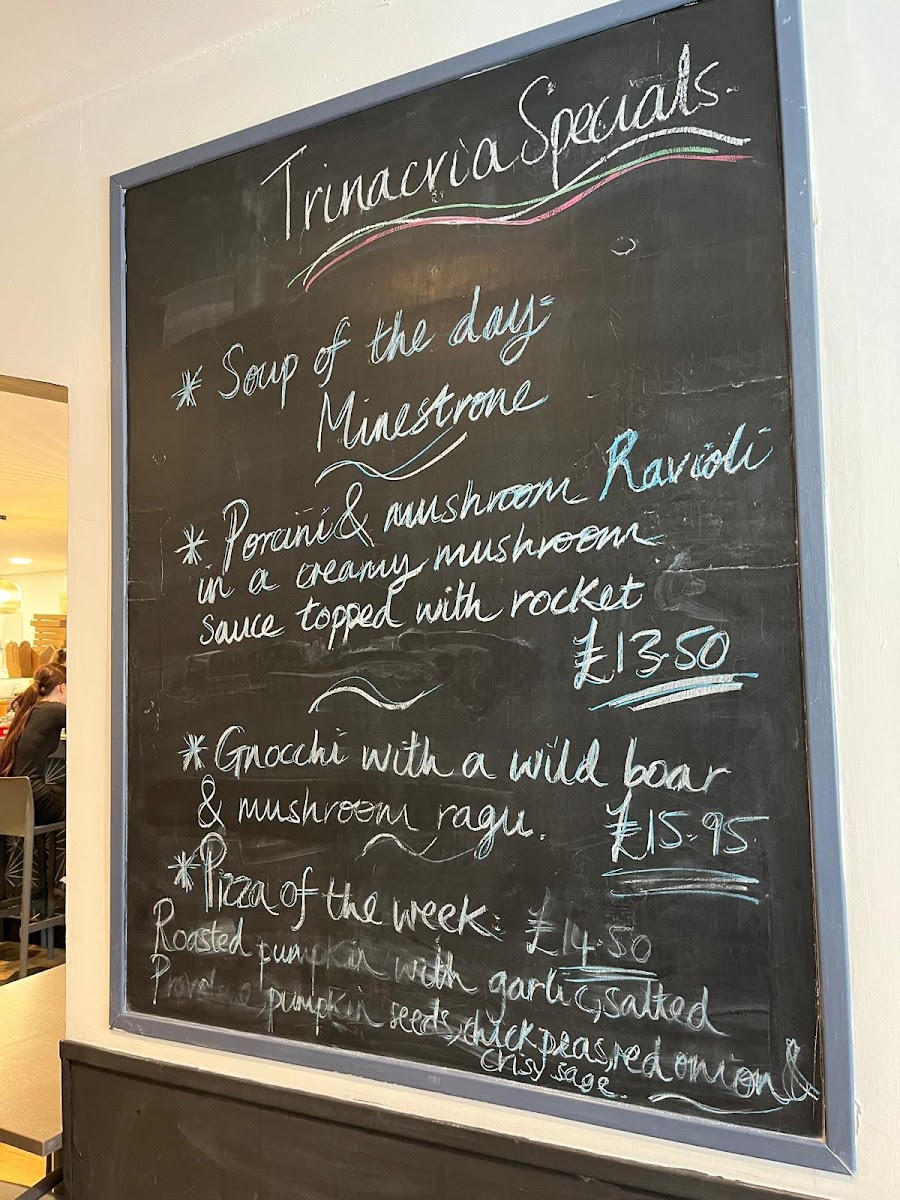 Trinacria Specials.
* Soup of the day=
Minestrone
* Porcini & mushroom Ravioli
in a creamy mushroom
sauce topped with rocket
£13.50
* Gnocchi with a wild boar
& mushroom ragu.
£15.95
* Pizza of the week: £14.50
Roasted pumpkin with garlic, salted
Provolone, pumpkin seeds, chickpeas, red onion &
Crisy sage.